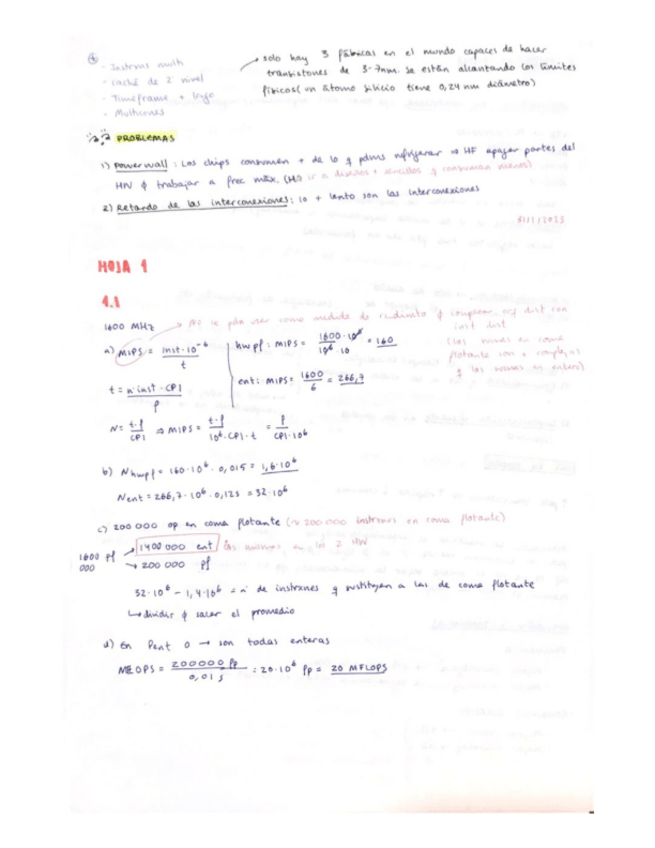 - Instrns multh
- caché de 2 nivel
- Timeframe + largo
- Multicores
solo hay 3 fábricas en el mundo capaces de hacer
transistores de 3-7nm. Se están alcantando los límites
físicos (un átomo silicio tiene 0,24 nm diámetro)
PROBLEMAS
1) Power wall : Los chips consumen + de lo q pdms refrigerar ⇒ HF apagar partes del
HW trabajar a frec máx. (Ho ir a diseños + sencillos q consuman menos)
2) Retardo de las interconexiones: lo + lento son las interconexiones
31/1/2023
HOJA 1
1.1
1600 MHz → No se pdn usar como medida de rendimto comparar arq dist con
inst dist
(las instr en coma
flotante son + complejas
q las instr en entero)
a) MIPS = inst·10⁻⁶ / t
hw pf: MIPS = 1600·10⁶ / 10⁶·10 = 160
t = n inst · CPI / f
ent: MIPS = 1600 / 6 = 266,7
N = t·f / CPI ⇒ MIPS = t·f / 10⁶·CPI·t = f / CPI·10⁶
b) Nhwpf = 160·10⁶ · 0,015 = 1,6·10⁶
Nent = 266,7·10⁶ · 0,12s = 32·10⁶
c) 200 000 op en coma flotante (~ 200 000 instrnes en coma flotante)
1600 000 pf → 1400 000 ent las mismas en los 2 HW
→ 200 000 pf
32·10⁶ - 1,4·10⁶ = nº de instrnes q sustituyen a las de coma flotante
↳ dividir sacar el promedio
d) En Pent 0 → son todas enteras
MFLOPS = 200000 fp / 0,01 s = 20·10⁶ fp = 20 MFLOPS